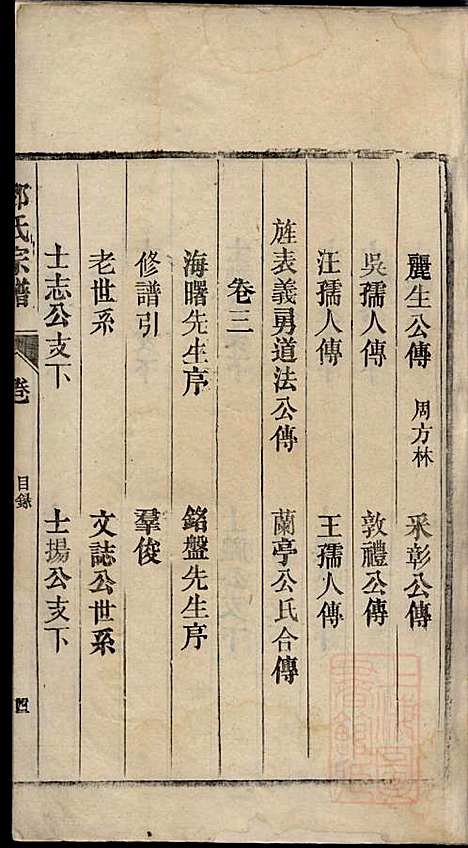 麗生公傳 周方林 釆彰公傳
吳孺人傳 敦禮公傳
汪孺人傳 王孺人傳
旌表義勇道法公傳 蘭亭公氏合傳
卷三
海曙先生序 銘盤先生序
修譜引 羣俊
老世系 文誌公世系
士志公支下 士揚公支下
氏宗譜 卷 目録 四